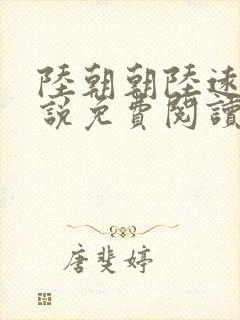 陸朝朝陸遠
說免費閱讀
唐斐婷